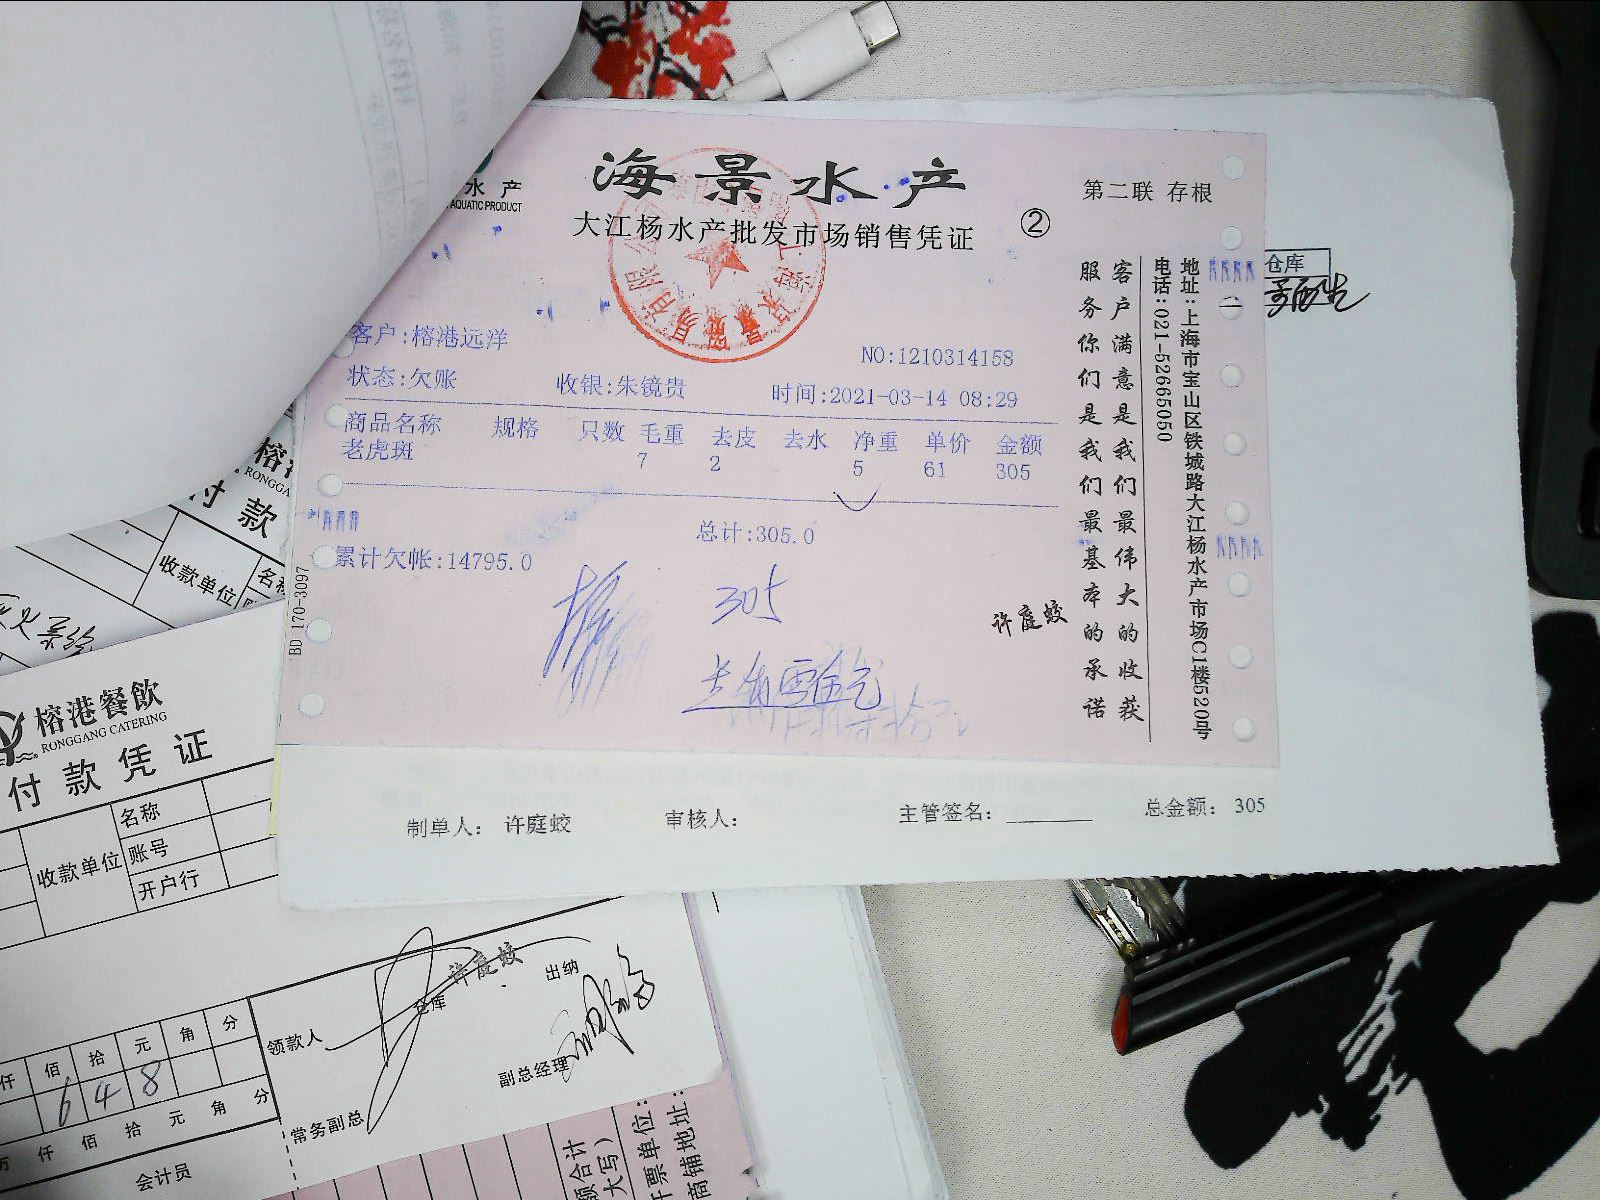 水产
AQUATIC PRODUCT
海景水产
大江杨水产批发市场销售凭证
②
第二联 存根
客户:榕港远洋
NO:1210314158
状态:欠账 收银:朱镜贵 时间:2021-03-14 08:29
商品名称 规格 只数 毛重 去皮 去水 净重 单价 金额
老虎斑 7 2 5 61 305
总计:305.0
累计欠帐:14795.0
305
许庭蛟
BD 170-3097
客户满意是我们最伟大的收获
服务你们是我们最基本的承诺
地址:上海市宝山区铁城路大江杨水产市场C1楼520号
电话:021-52665050
仓库
制单人: 许庭蛟 审核人: 主管签名: 总金额: 305
榕港
RONGGA
付款
收款单位
榕港餐飲
RONGGANG CATERING
付款凭证
收款单位
名称
账号
开户行
领款人
仓库
许庭蛟
出纳
副总经理
常务副总
仟 佰 拾 元 角 分
6 4 8
万 仟 佰 拾 元 角 分
会计员
额合计
大写)
开票单位:
商铺地址: